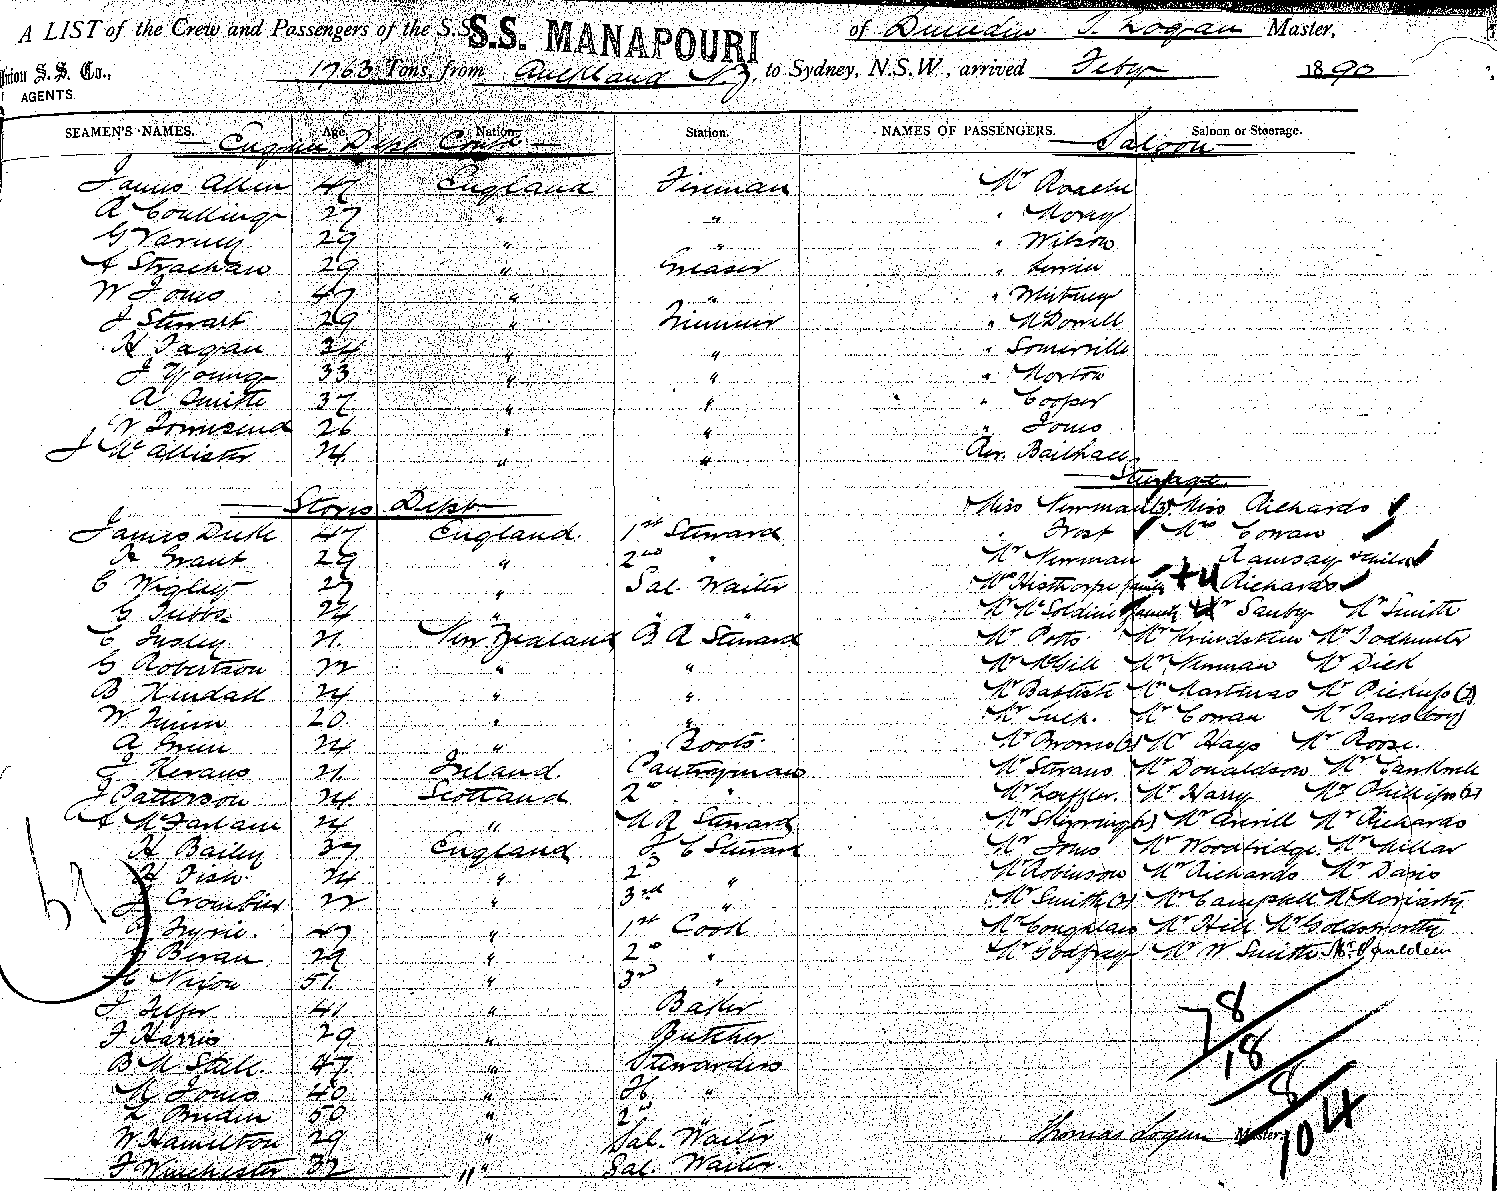 A LIST of the Crew and Passengers of the S.S. S.S. MANAPOURI of Dunedin T. Logan Master,
Union S. S. Co., 1763 Tons, from Auckland N.Z, to Sydney, N.S.W., arrived Feby 1890
AGENTS.
SEAMEN'S NAMES. Age. Nation. Station. NAMES OF PASSENGERS. Saloon or Steerage.
Engineer Dept Contd Saloon
James Allen 47 England Fireman Mr Roache
A Coulling 27 " " "
G Varney 29 " " " Wilson
A Strachan 29 " Greaser "
W Jones 47 " " " Whitney
J Stewart 29 " Trimmer " McDowell
H Fagan 34 " " " Somerville
J Young 33 " " " Morton
A Smith 37 " " " Cooper
W Townsend 26 " " " Jones
J McAllister 24 " " Rev.
Steerage
Stores Dept Miss Newman Miss Richards
James Duke 47 England 1st Steward " Frost Mrs Cowan
H Grant 29 " 2nd " Mr Newman Ramsay child
C Wigley 27 " Sal. Waiter Mrs family +4 Richards
G Tubbs 24 " " " family Mr Sanby Mr Smith
C Insley 21 New Zealand B. R Steward Mr Potts Mr Mr Todhunter
G Robertson 22 " " Mr McGill Mr Newman Mr Dick
B Kendall 24 " " Mr Baptiste Mr Mr Pickup (2)
W 20 " " Mr Mr Cowan Mr (boy)
A Green 24 " Boots Mr Mr Hays Mr Roose
J Kerans 21 Ireland Pantryman Mr Stevens Mr Donaldson Mr
J Patterson 24 Scotland 2nd " Mr Loeffler. Mr Harry Mr Phillips
A McFarlane 24 " Steward Mr Mr Averill Mr Richards
H Bailey 37 England F C Steward Mr Jones Mr Woodbridge Mr Millar
H Fish 24 " 2nd " Mr Robinson Mr Richards Mr Davis
J Crombie 22 " 3rd " Mr Smith Mr Campbell Mr Moriarty
47 " 1st Cook Mr Coughlan Mr Hill Mr Goldsworthy
Bevan 29 " 2nd " Mr Godfrey Mr W Smith Mr
Nixon 51 " 3rd "
J Telfer 41 " Baker
J Harris 29 " Butcher 78
B M Stall 47 " Stewardess 18
M Jones 40 " " 8
L 50 " 2nd "
W Hamilton 29 " Sal. Waiter Thomas Logan Master 104
J Winchester 32 " Sal. Waiter